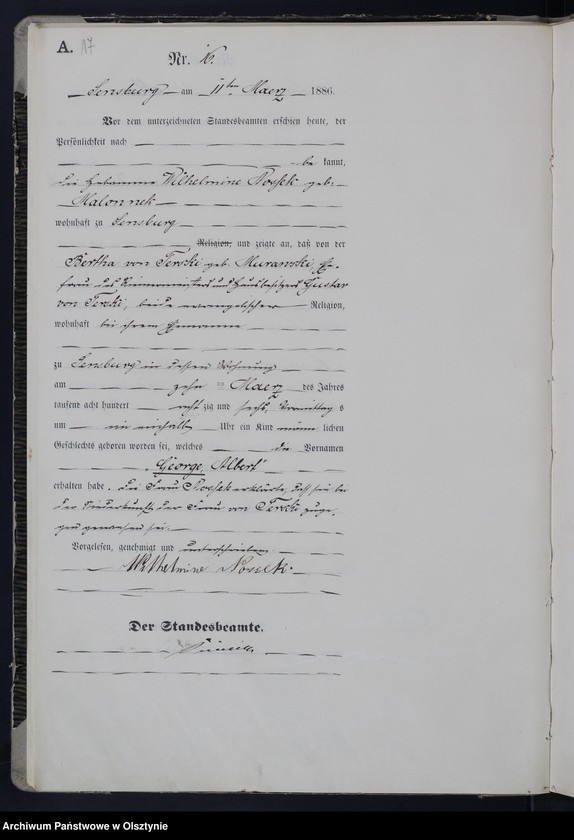 A. 17
Nr. 16.
Sensburg am 11ten Maerz 1886.
Vor dem unterzeichneten Standesbeamten erschien heute, der
Persönlichkeit nach
be kannt,
die Hebamme Wilhelmine Nossek geb.
Malonnek
wohnhaft zu Sensburg
Religion, und zeigte an, daß von der
Bertha von Terski geb. Muranski, Ehe-
frau des Riemermeisters und Hausbesitzers Gustav
von Terski, beide evangelischer Religion,
wohnhaft bei ihrem Ehemanne
zu Sensburg in dessen Wohnung
am zehnten Maerz des Jahres
tausend acht hundert acht zig und sechs, Vormittag s
um ein einhalb Uhr ein Kind männ lichen
Geschlechts geboren worden sei, welches die Vornamen
„George, Albert"
erhalten habe. Die Frau Nossek erklärte, daß sie bei
der Niederkunft der Frau von Terski zuge-
gen gewesen sei.
Vorgelesen, genehmigt und unterschrieben
Wilhelmine Nossek.
Der Standesbeamte.
Archiwum Państwowe w Olsztynie